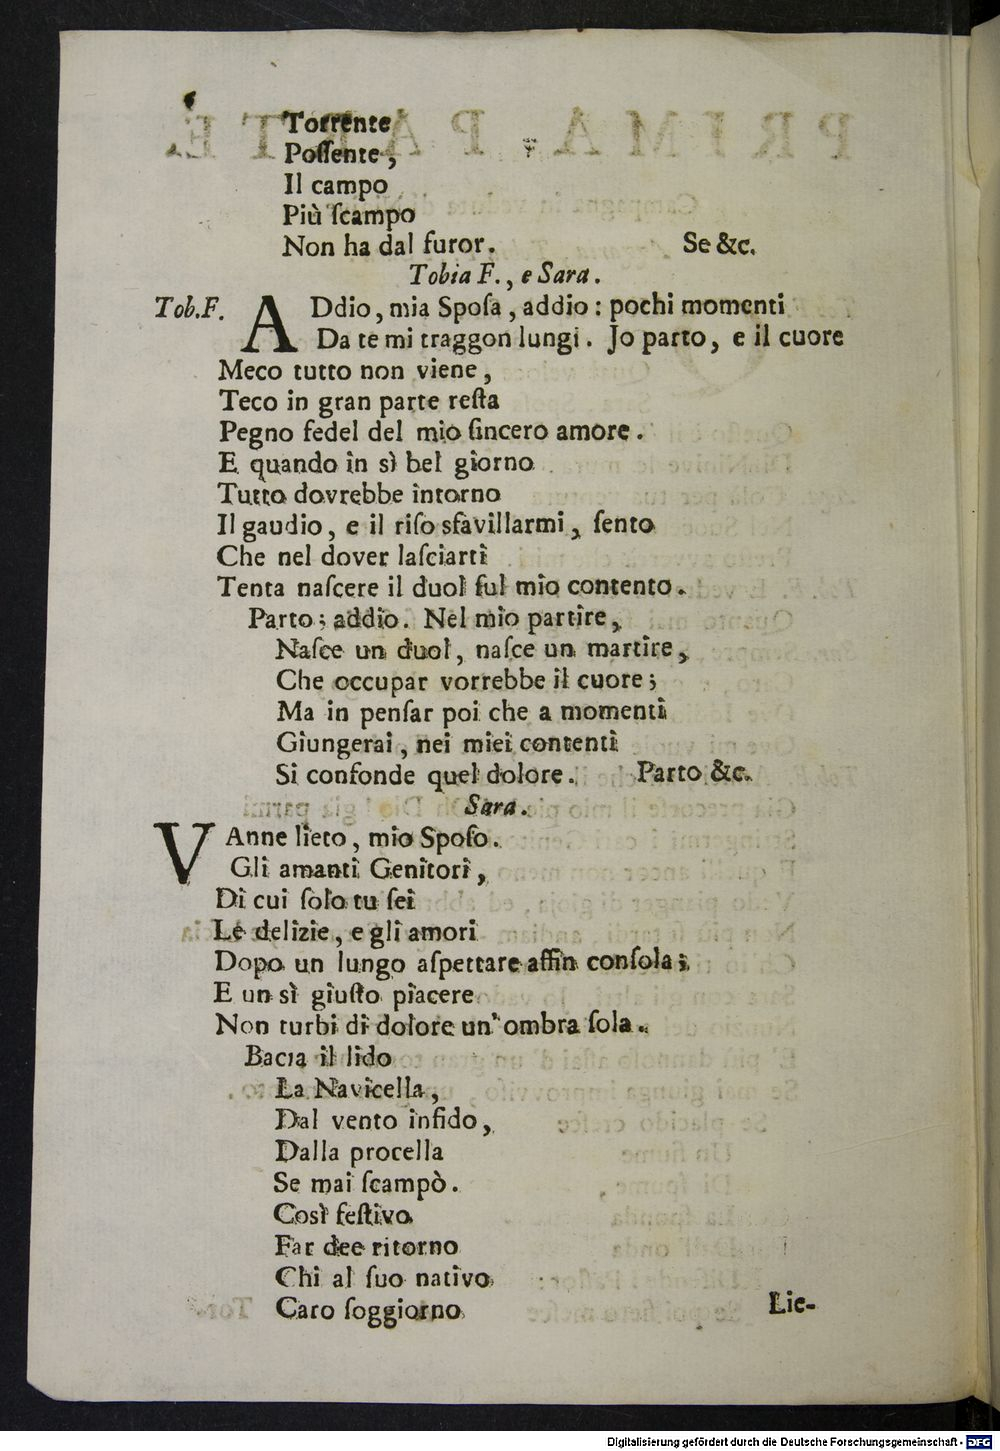 6
Torrente
Poſſente,
Il campo
Più ſcampo
Non ha dal furor. Se &c.
Tobia F., e Sara.
Tob.F. ADdio, mia Spoſa, addio: pochi momenti
Da te mi traggon lungi. Jo parto, e il cuore
Meco tutto non viene,
Teco in gran parte reſta
Pegno fedel del mio ſincero amore.
E quando in sì bel giorno
Tutto dovrebbe intorno
Il gaudio, e il riſo sfavillarmi, ſento
Che nel dover laſciarti
Tenta naſcere il duol ſul mio contento.
Parto; addio. Nel mio partire,
Naſce un duol, naſce un martire,
Che occupar vorrebbe il cuore;
Ma in penſar poi che a momenti
Giungerai, nei miei contenti
Si confonde quel dolore. Parto &c.
Sara.
VAnne lieto, mio Spoſo.
Gli amanti Genitori,
Di cui ſolo tu ſei
Le delizie, e gli amori
Dopo un lungo aſpettare affin conſola;
E un sì giuſto piacere
Non turbi di dolore un' ombra ſola.
Bacia il lido
La Navicella,
Dal vento infido,
Dalla procella
Se mai ſcampò.
Così feſtivo
Far dee ritorno
Chi al ſuo nativo
Caro ſoggiorno
Lie-
Digitalisierung gefördert durch die Deutsche Forschungsgemeinschaft - DFG